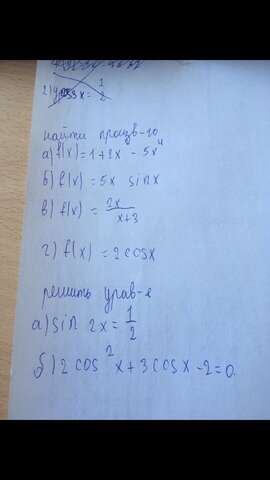 2) cos3x = 1/2
найти произв-ю
а) f(x) = 1+3x - 5x⁴
б) f(x) = 5x sinx
в) f(x) = 2x/x+3
г) f(x) = 2cosx
решить урав-е
а) sin 2x = 1/2
б) 2cos²x + 3cosx - 2 = 0.